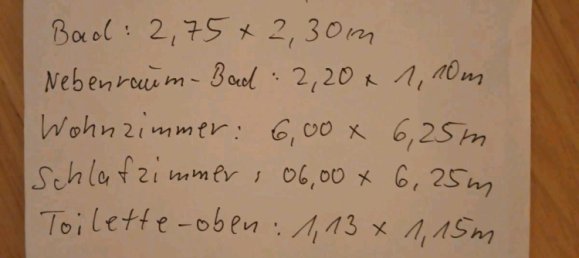 Bad: 2,75 x 2,30m
Nebenraum-Bad: 2,20 x 1,10m
Wohnzimmer: 6,00 x 6,25m
Schlafzimmer: 06,00 x 6,25m
Toilette-oben: 1,13 x 1,15m